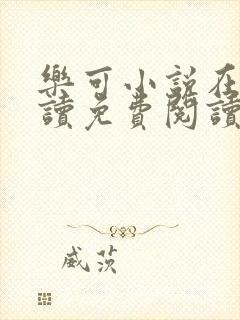 樂可小說在
讀免費閱讀
威茨